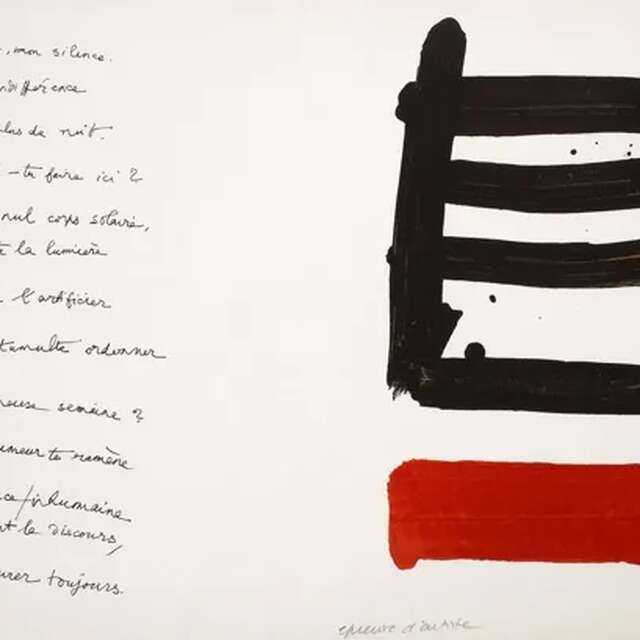 , mon silence.
ndifférence
plus de nuit.
-tu faire ici ?
nul corps solaire,
te la lumière
l'artificier
tumulte ordonner
reuse semaine ?
umeur te ramène
ce/inhumaine
nt le discours,
urer toujours.
épreuve d'artiste